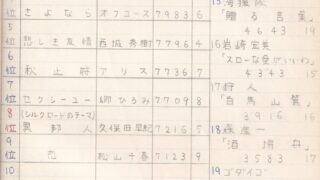 位 さよなら オフコース 79836 6
5
位 悲しき友情 西城秀樹 77964
6
位 秋止符 アリス 7736 7
7
位 セクシーユー 郷ひろみ 77098
8 (シルクロードのテーマ)
位 異邦人 久保田早紀 72165
9
位 恋 松山千春 71239
10
15 海援隊
「贈る言葉」
4643 19
16 岩崎宏美
「スローな愛がいいわ」
4343 15
17 狩人
「白馬山麓」
4315 16
18 森進一
「酒場舟」
3583 17
19 ゴダイゴ